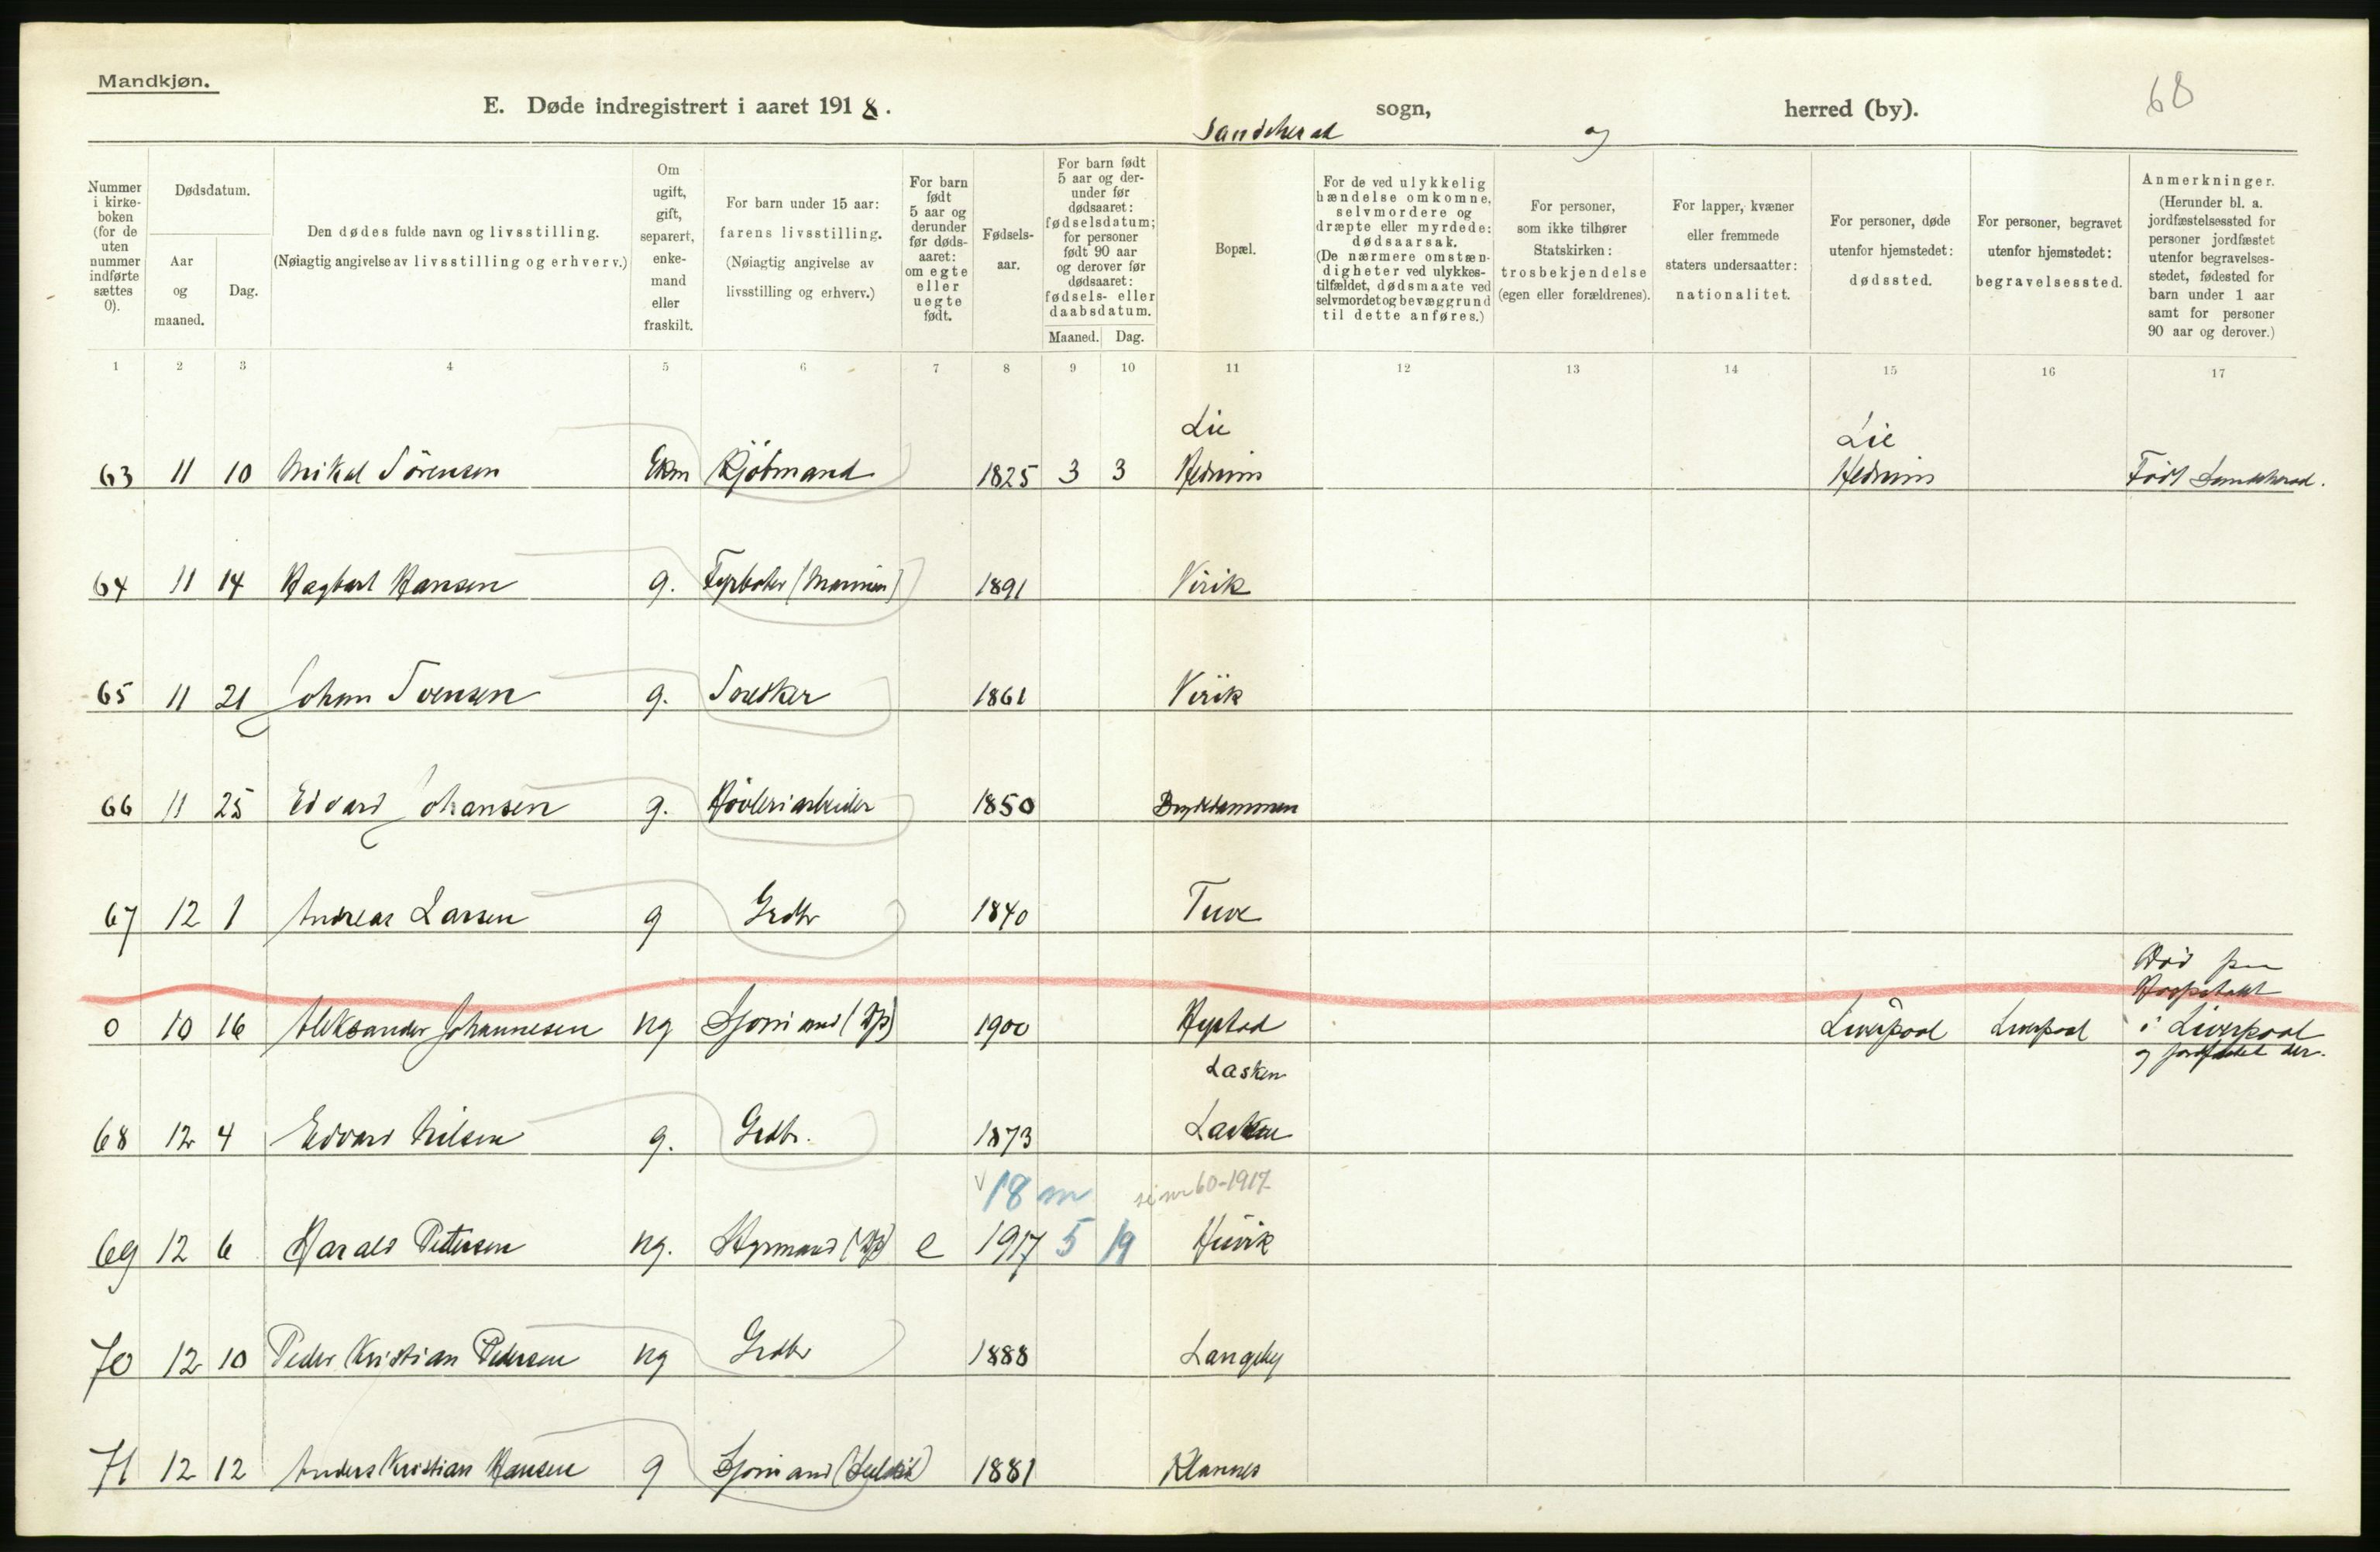 Mandkjøn.
68
E. Døde indregistrert i aaret 1918.
Sandeherad sogn, og herred (by).
Nummer i kirkeboken (for de uten nummer indførte sættes 0).
Dødsdatum.
Aar og maaned.
Dag.
Den dødes fulde navn og livsstilling.
(Nøiagtig angivelse av livsstilling og erhverv.)
Om ugift, gift, separert, enkemand eller fraskilt.
For barn under 15 aar: farens livsstilling. (Nøiagtig angivelse av livsstilling og erhverv.)
For barn født 5 aar og derunder før dødsaaret: om egte eller uegte født.
Fødselsaar.
For barn født 5 aar og derunder før dødsaaret: fødselsdatum; for personer født 90 aar og derover før dødsaaret: fødsels- eller daabsdatum.
Maaned. Dag.
Bopæl.
For de ved ulykkelig hændelse omkomne, selvmordere og dræpte eller myrdede: dødsaarsak. (De nærmere omstændigheter ved ulykkestilfældet, dødsmaate ved selvmordet og bevæggrund til dette anføres.)
For personer, som ikke tilhører Statskirken: trosbekjendelse (egen eller forældrenes).
For lapper, kvæner eller fremmede staters undersaatter: nationalitet.
For personer, døde utenfor hjemstedet: dødssted.
For personer, begravet utenfor hjemstedet: begravelsessted.
Anmerkninger. (Herunder bl. a. jordfæstelsessted for personer jordfæstet utenfor begravelsesstedet, fødested for barn under 1 aar samt for personer 90 aar og derover.)
1 2 3 4 5 6 7 8 9 10 11 12 13 14 15 16 17
Lie Lie
63 11 10 Mikal Sörensen Ekm Kjöbmand 1825 3 3 Hedrum Hedrum Født Sandeherad.
64 11 14 Hagbart Hansen g. Fyrböter (Marinen) 1891 Virik
65 11 21 Johan Svensen g. Snedker 1861 Virik
66 11 25 Edvard Johansen g. Hövleriarbeider 1850 Brydedammen
67 12 1 Andreas Larsen g Grdbr 1840 Tuve
Död paa Hospitalet
0 10 16 Aleksander Johannesen ug Sjömand (Dp) 1900 Hystad Liverpool Liverpool i Liverpool
og jordfæstet der.
Lasken
68 12 4 Edvard Nilsen g. Grdbr. 1873 Lasken
18 m se nr 60-1917
69 12 6 Harald Pettersen ug. Styrmand (Dp) e 1917 5 19 Huvik
70 12 10 Peder Kristian Pedersen ug Grdbr 1888 Langeby
71 12 12 Anders Kristian Hansen g Sjömand 1881 Klavnes